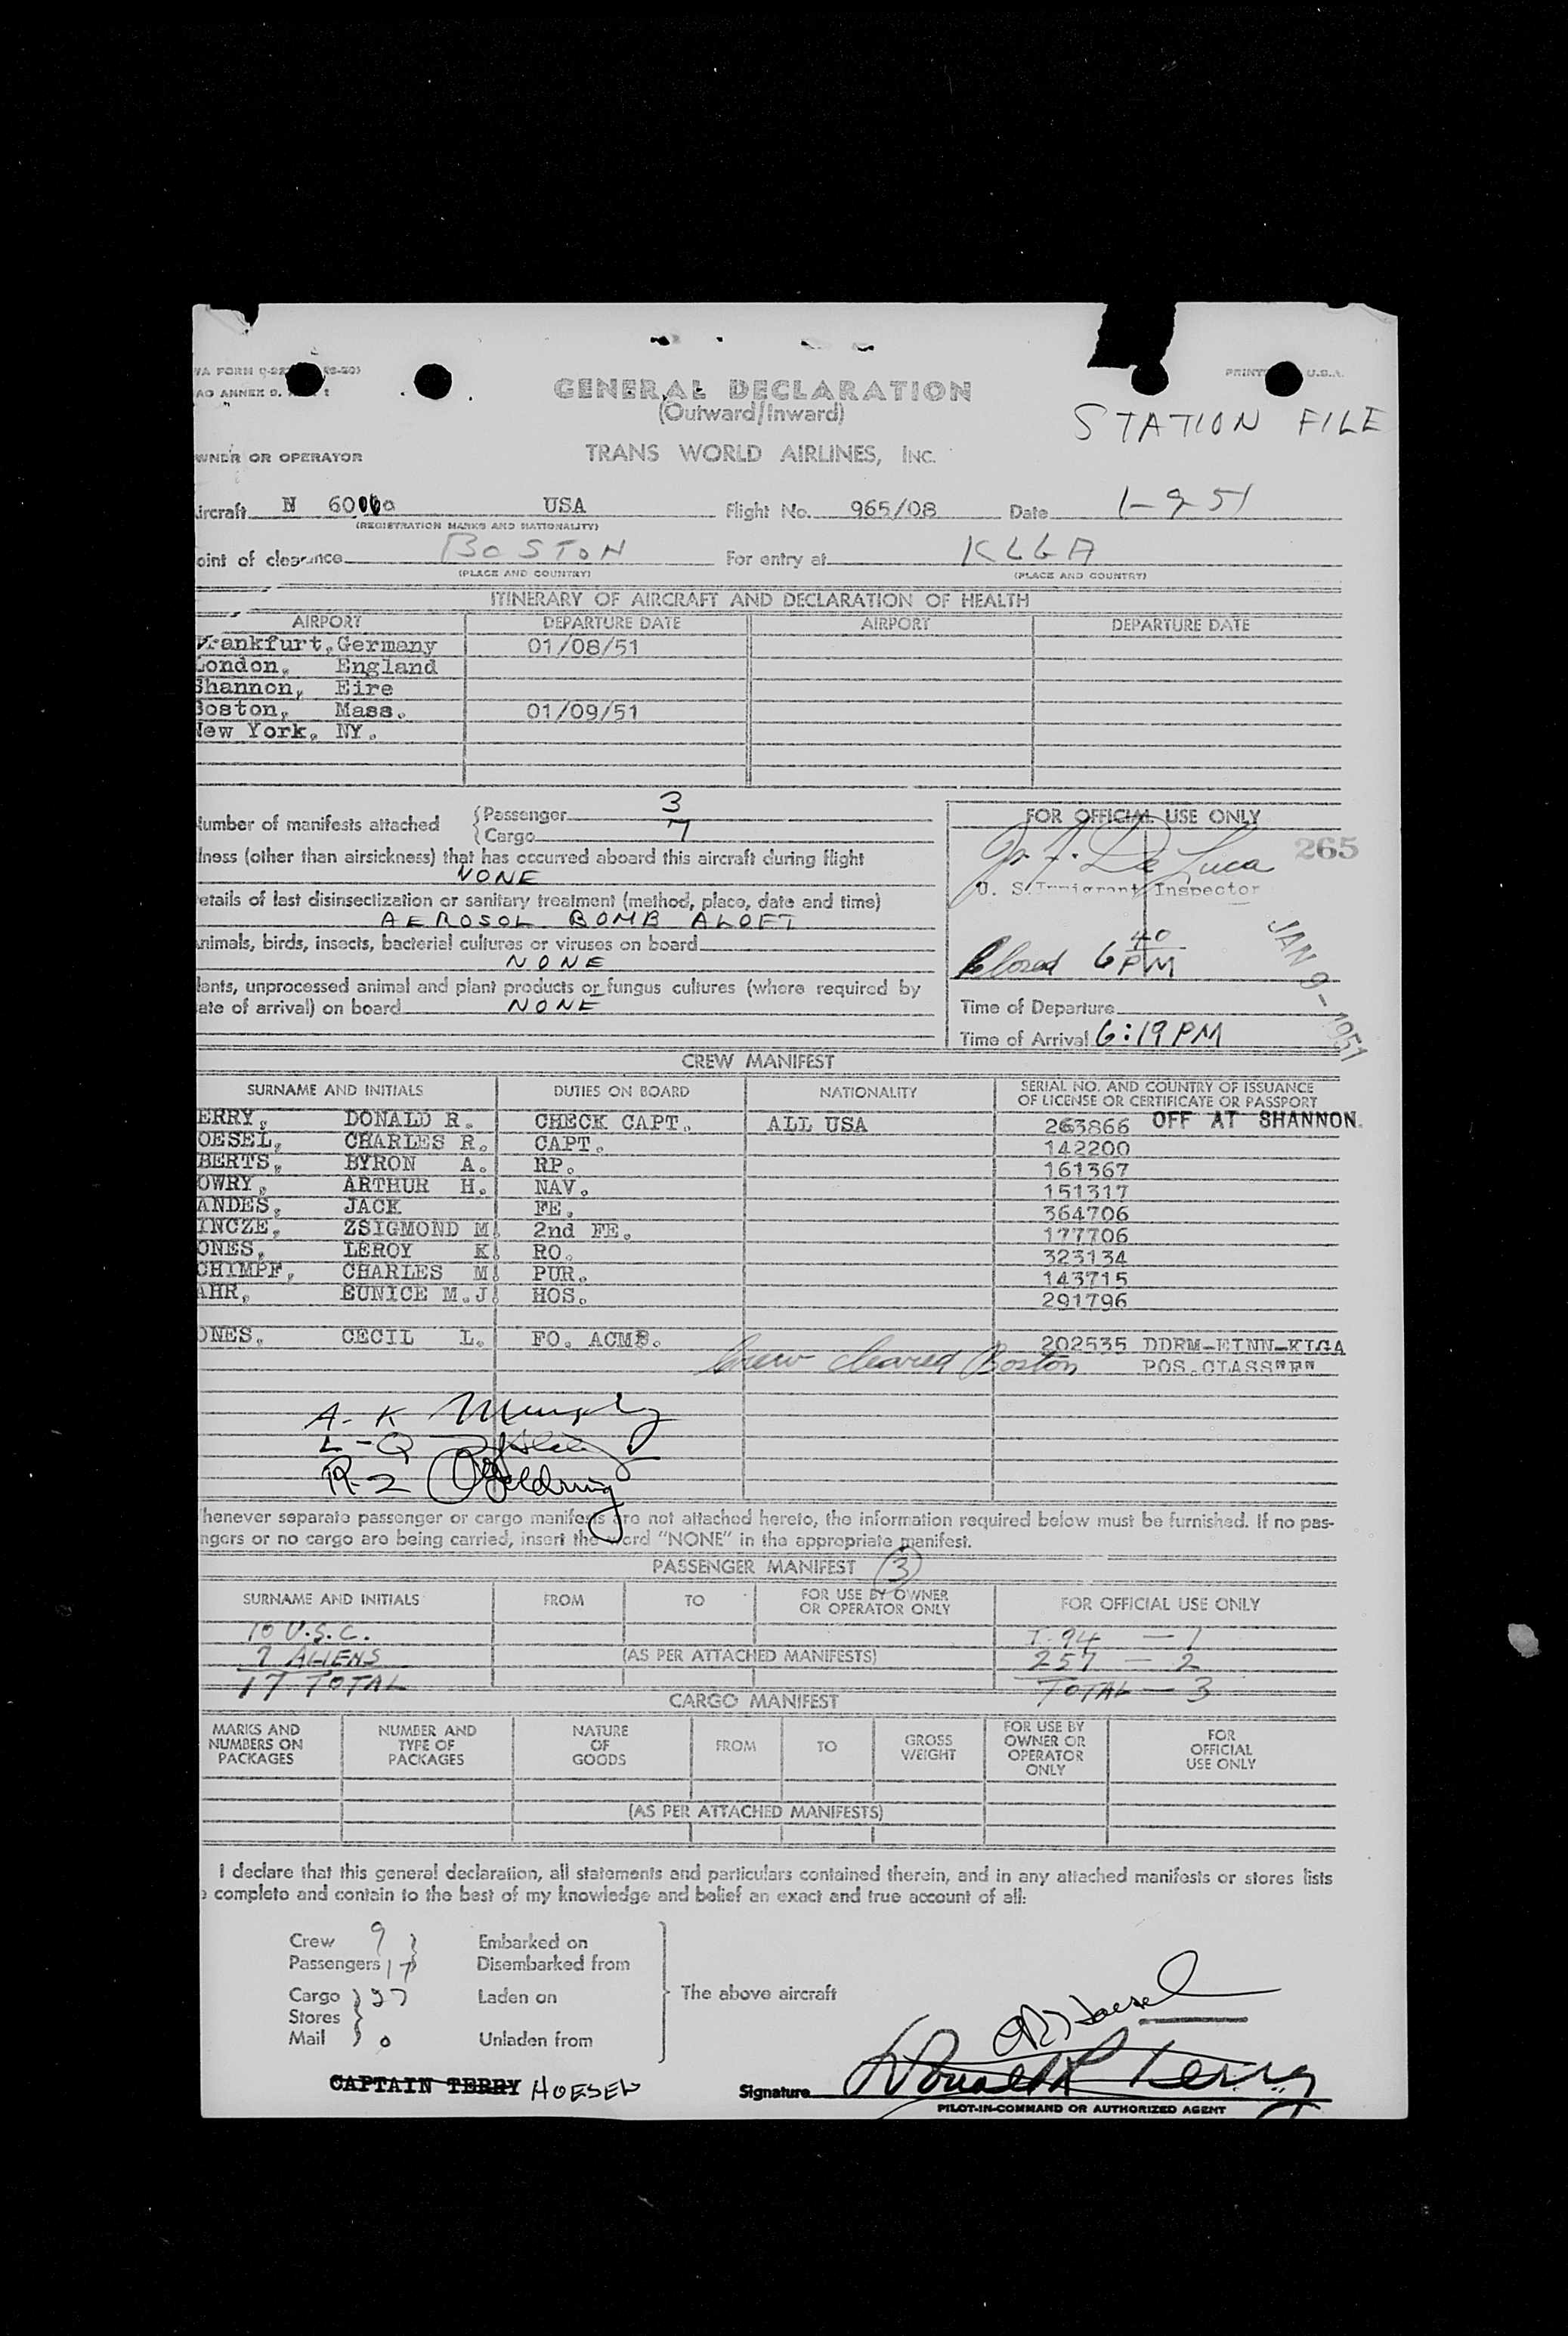 GENERAL DECLARATION
(Outward/Inward)
STATION FILE
WNER OR OPERATOR TRANS WORLD AIRLINES, INC.
ircraft N USA Flight No. 965/08 Date 1-9-51
(REGISTRATION MARKS AND NATIONALITY)
oint of clearance BOSTON For entry at KLGA
(PLACE AND COUNTRY) (PLACE AND COUNTRY)
ITINERARY OF AIRCRAFT AND DECLARATION OF HEALTH
AIRPORT DEPARTURE DATE AIRPORT DEPARTURE DATE
Frankfurt, Germany 01/08/51
London, England
Shannon, Eire
Boston, Mass. 01/09/51
New York, NY.
Number of manifests attached Passenger 3
Cargo 7
lness (other than airsickness) that has occurred aboard this aircraft during flight
NONE
etails of last disinsectization or sanitary treatment (method, place, date and time)
AEROSOL BOMB ALOFT
nimals, birds, insects, bacterial cultures or viruses on board
NONE
lants, unprocessed animal and plant products or fungus cultures (where required by
ate of arrival) on board NONE
FOR OFFICIAL USE ONLY
De Luca 265
U. S. Immigrant Inspector
6 40 PM
JAN 9 - 1951
Time of Departure
Time of Arrival 6:19 PM
CREW MANIFEST
SURNAME AND INITIALS DUTIES ON BOARD NATIONALITY SERIAL NO. AND COUNTRY OF ISSUANCE
OF LICENSE OR CERTIFICATE OR PASSPORT
ERRY, DONALD R. CHECK CAPT. ALL USA 263866 OFF AT SHANNON.
OESEL, CHARLES R. CAPT. 142200
BERTS, BYRON A. RP. 161367
OWRY, ARTHUR H. NAV. 151317
ANDES, JACK FE. 364706
INCZE, ZSIGMOND M. 2nd FE. 177706
ONES, LEROY K. RO. 323134
CHIMPF, CHARLES M. PUR. 143715
AHR, EUNICE M.J. HOS. 291796
ONES. CECIL L. FO. ACMB. 202535 DDRM-EINN-KLGA
Crew cleared Boston POS.CLASS"F"
A-K Murphy
L-Q
R-Z
henever separate passenger or cargo manifests are not attached hereto, the information required below must be furnished. If no pas-
ngers or no cargo are being carried, insert the word "NONE" in the appropriate manifest.
PASSENGER MANIFEST 3
SURNAME AND INITIALS FROM TO FOR USE BY OWNER
OR OPERATOR ONLY FOR OFFICIAL USE ONLY
10 U.S.C. I-94 - 1
7 ALIENS (AS PER ATTACHED MANIFESTS) 257 - 2
17 TOTAL TOTAL - 3
CARGO MANIFEST
MARKS AND
NUMBERS ON
PACKAGES
NUMBER AND
TYPE OF
PACKAGES
NATURE
OF
GOODS
FROM
TO
GROSS
WEIGHT
FOR USE BY
OWNER OR
OPERATOR
ONLY
FOR
OFFICIAL
USE ONLY
(AS PER ATTACHED MANIFESTS)
I declare that this general declaration, all statements and particulars contained therein, and in any attached manifests or stores lists
complete and contain to the best of my knowledge and belief an exact and true account of all:
Crew 9 Embarked on
Passengers 17 Disembarked from
Cargo Laden on The above aircraft
Stores
Mail 0 Unladen from
CAPTAIN TERRY HOESEL
Signature Donald R Terry
PILOT-IN-COMMAND OR AUTHORIZED AGENT